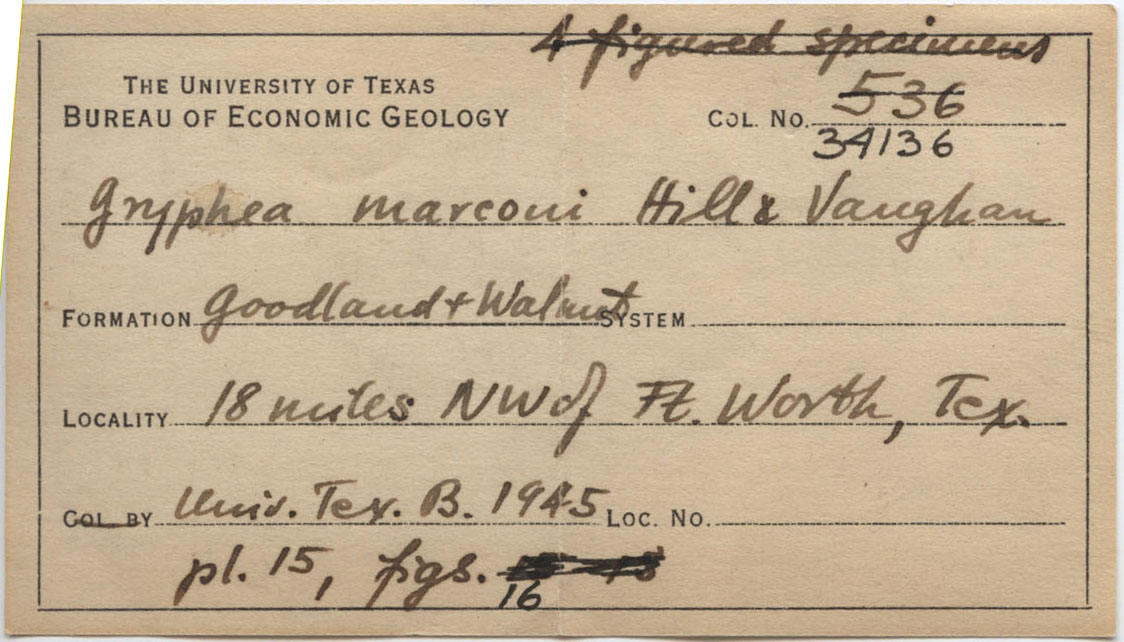 4 figured specimens
THE UNIVERSITY OF TEXAS
BUREAU OF ECONOMIC GEOLOGY
COL. NO. 536
34136
Gryphea marcoui Hill & Vaughan
FORMATION Goodland + Walnut SYSTEM
LOCALITY 18 miles NW of Ft. Worth, Tex.
COL. BY Univ. Tex. B. 1945 LOC. NO.
pl. 15, figs.
16